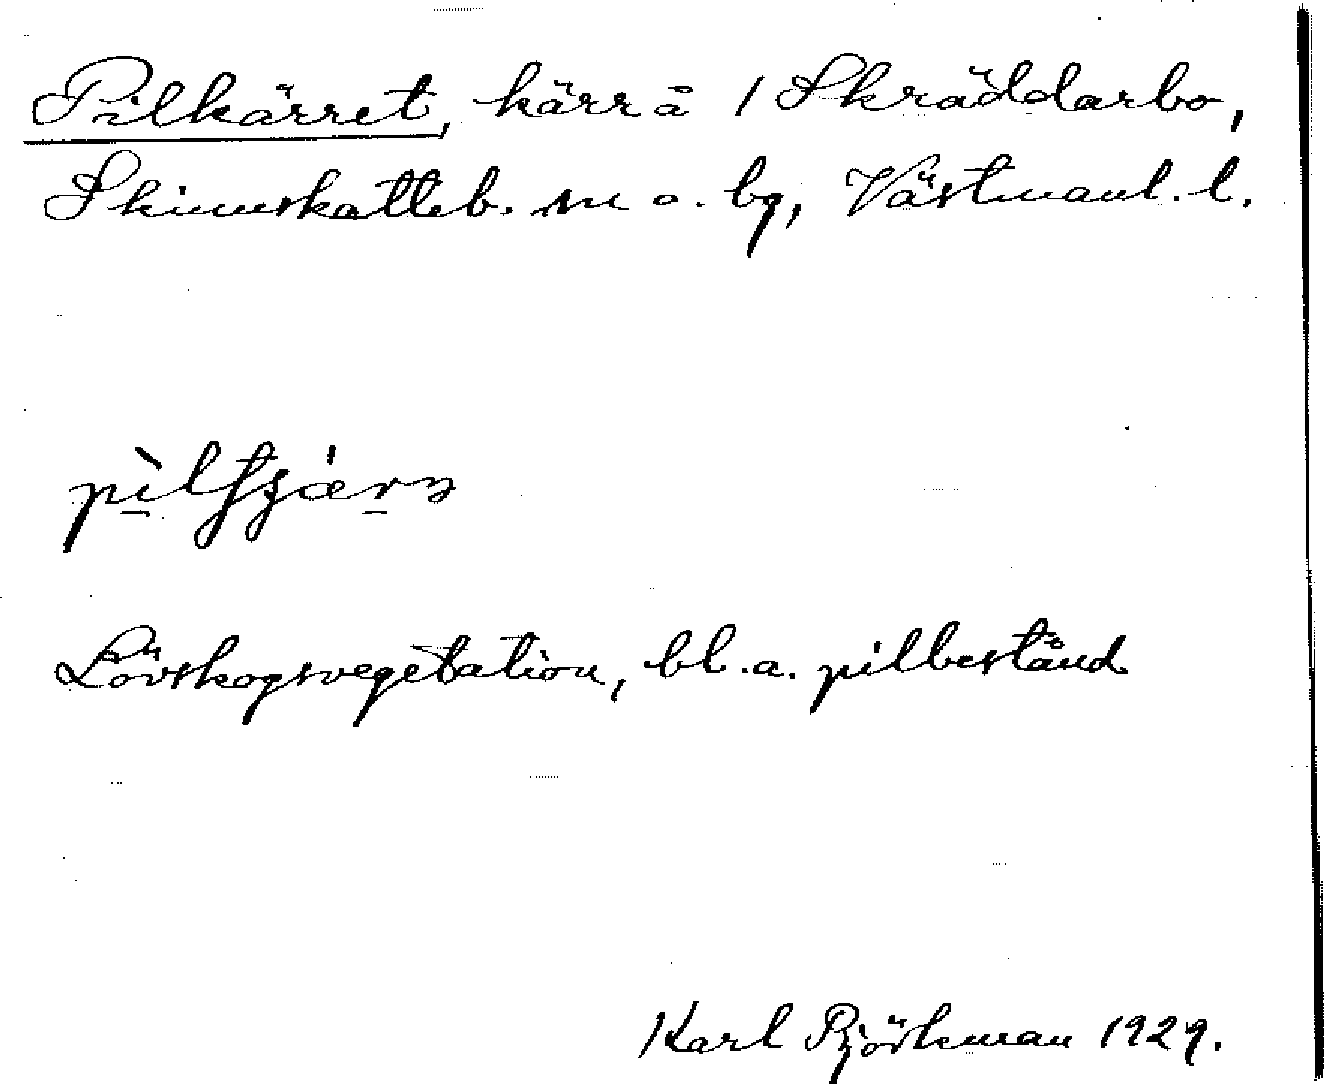 Pilkärret, kärr å 1 Skräddarbo,
Skinnskatteb. sn o. bg, Västmanl. l.
Lövskogsvegetation, bl.a. pilbestånd
Karl Björkman 1929.